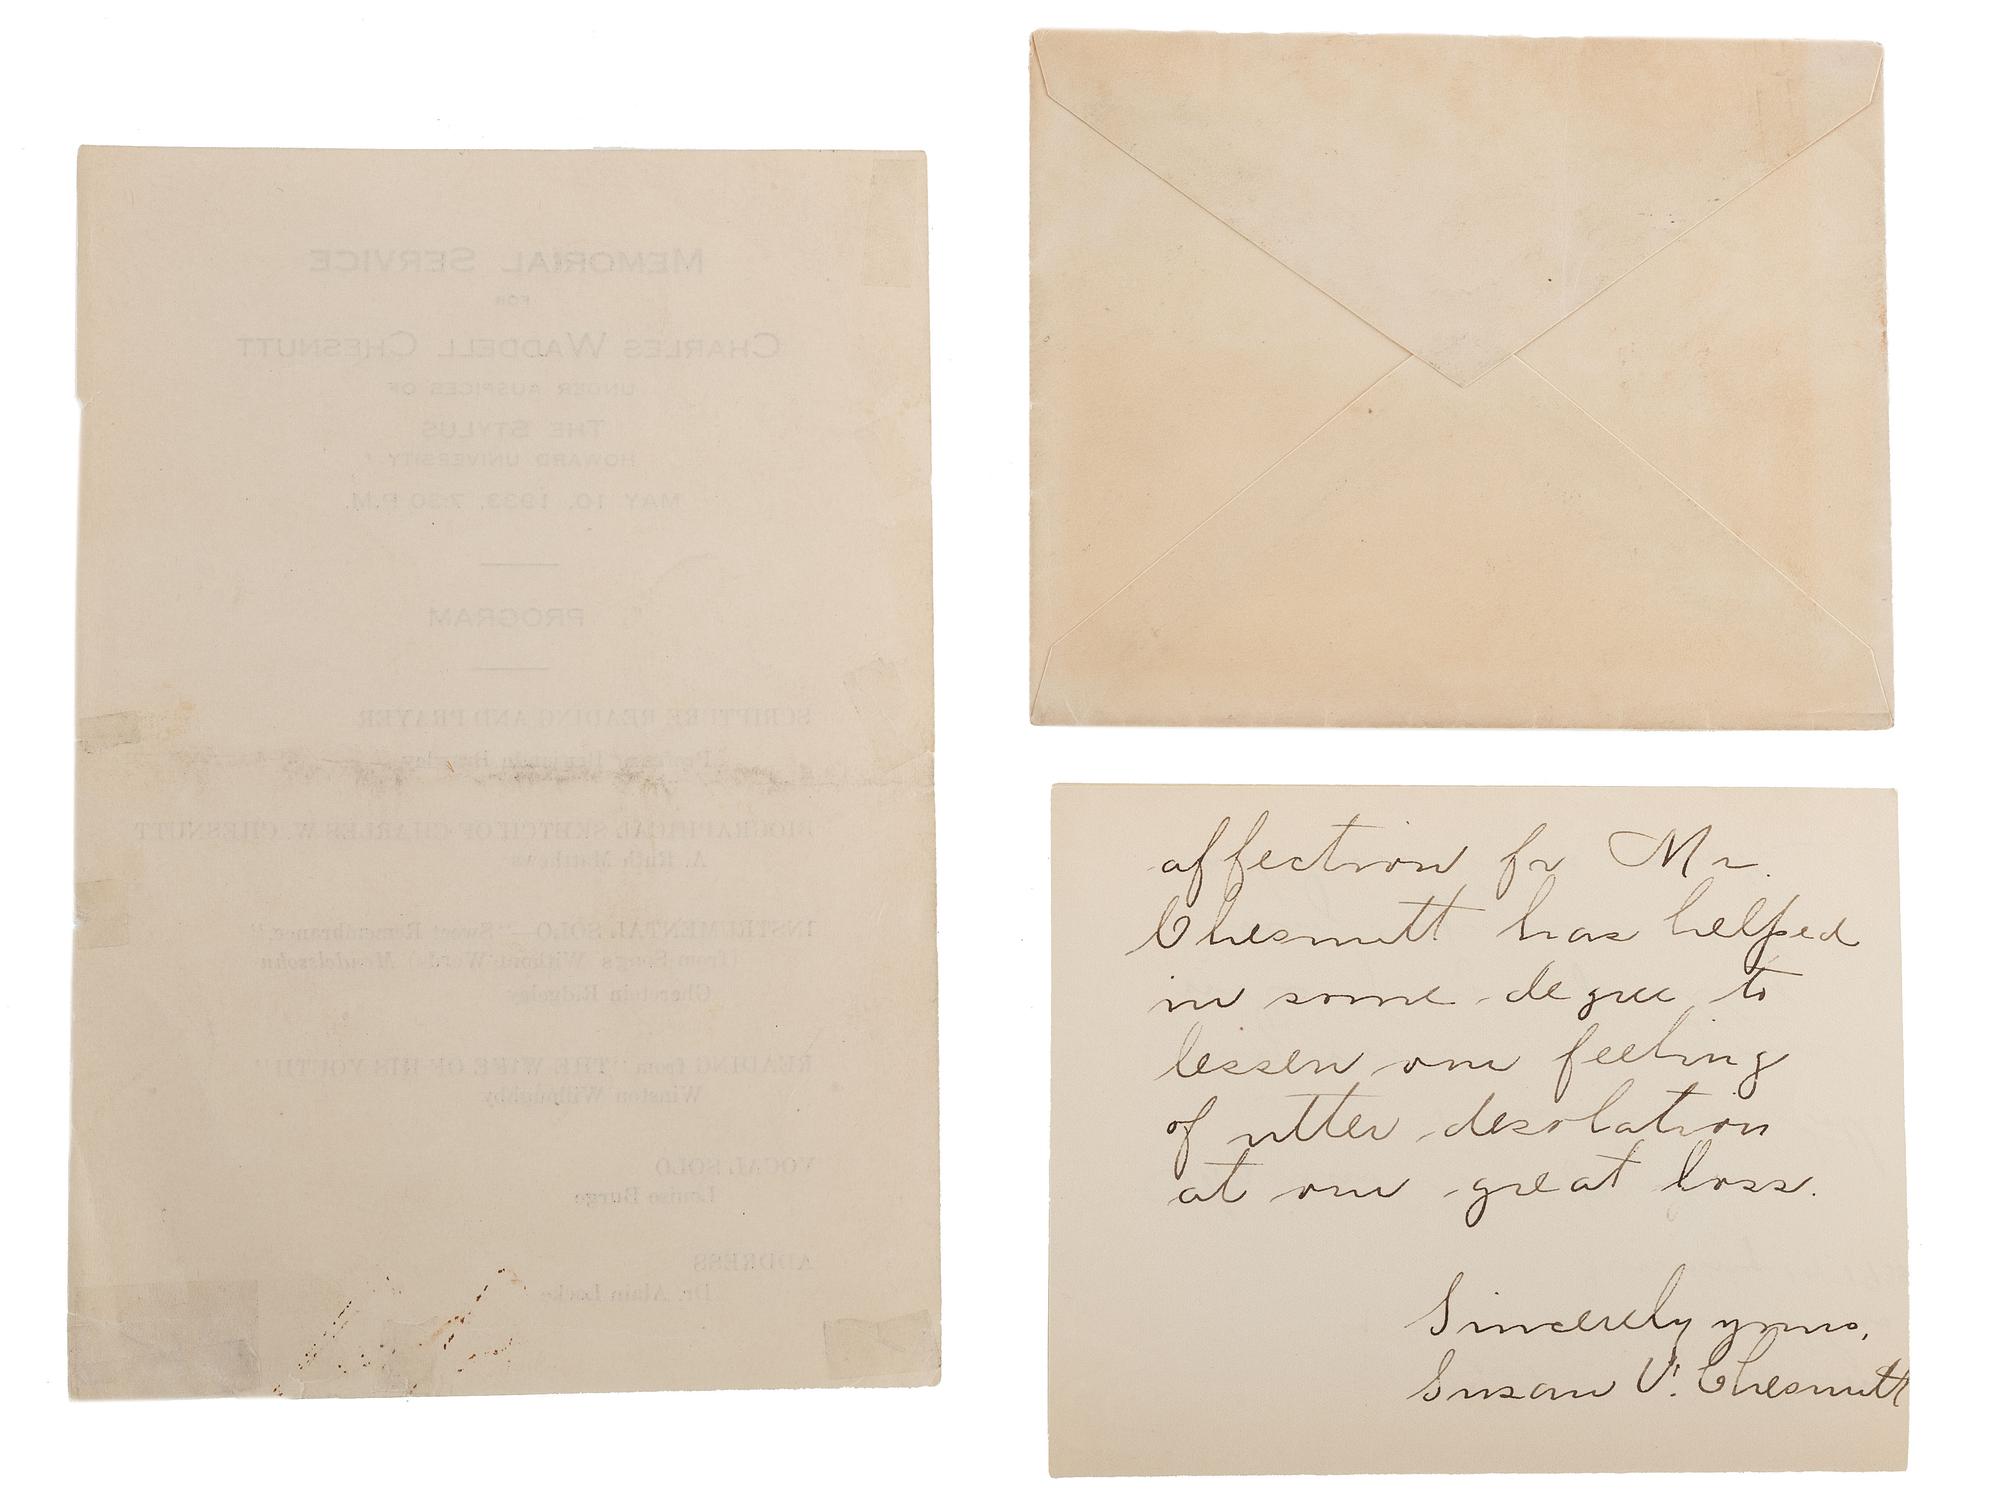 MEMORIAL SERVICE
FOR
CHARLES WADDELL CHESNUTT
UNDER AUSPICES OF
THE STYLUS
HOWARD UNIVERSITY
MAY 10, 1933, 7:30 P.M.
PROGRAM
SCRIPTURE READING AND PRAYER
Professor Benjamin Brawley
BIOGRAPHICAL SKETCH OF CHARLES W. CHESNUTT
A. Ruth Matthews
INSTRUMENTAL SOLO—"Sweet Remembrance,"
(from Songs Without Words) Mendelssohn
Ridgeley
READING from "THE WIFE OF HIS YOUTH"
Winston Willoughby
VOCAL SOLO
Louise Burge
ADDRESS
Dr. Alain Locke
affection for Mr.
Chesnutt has helped
in some degree to
lessen our feeling
of utter desolation
at our great loss.
Sincerely yours,
Susan U. Chesnutt